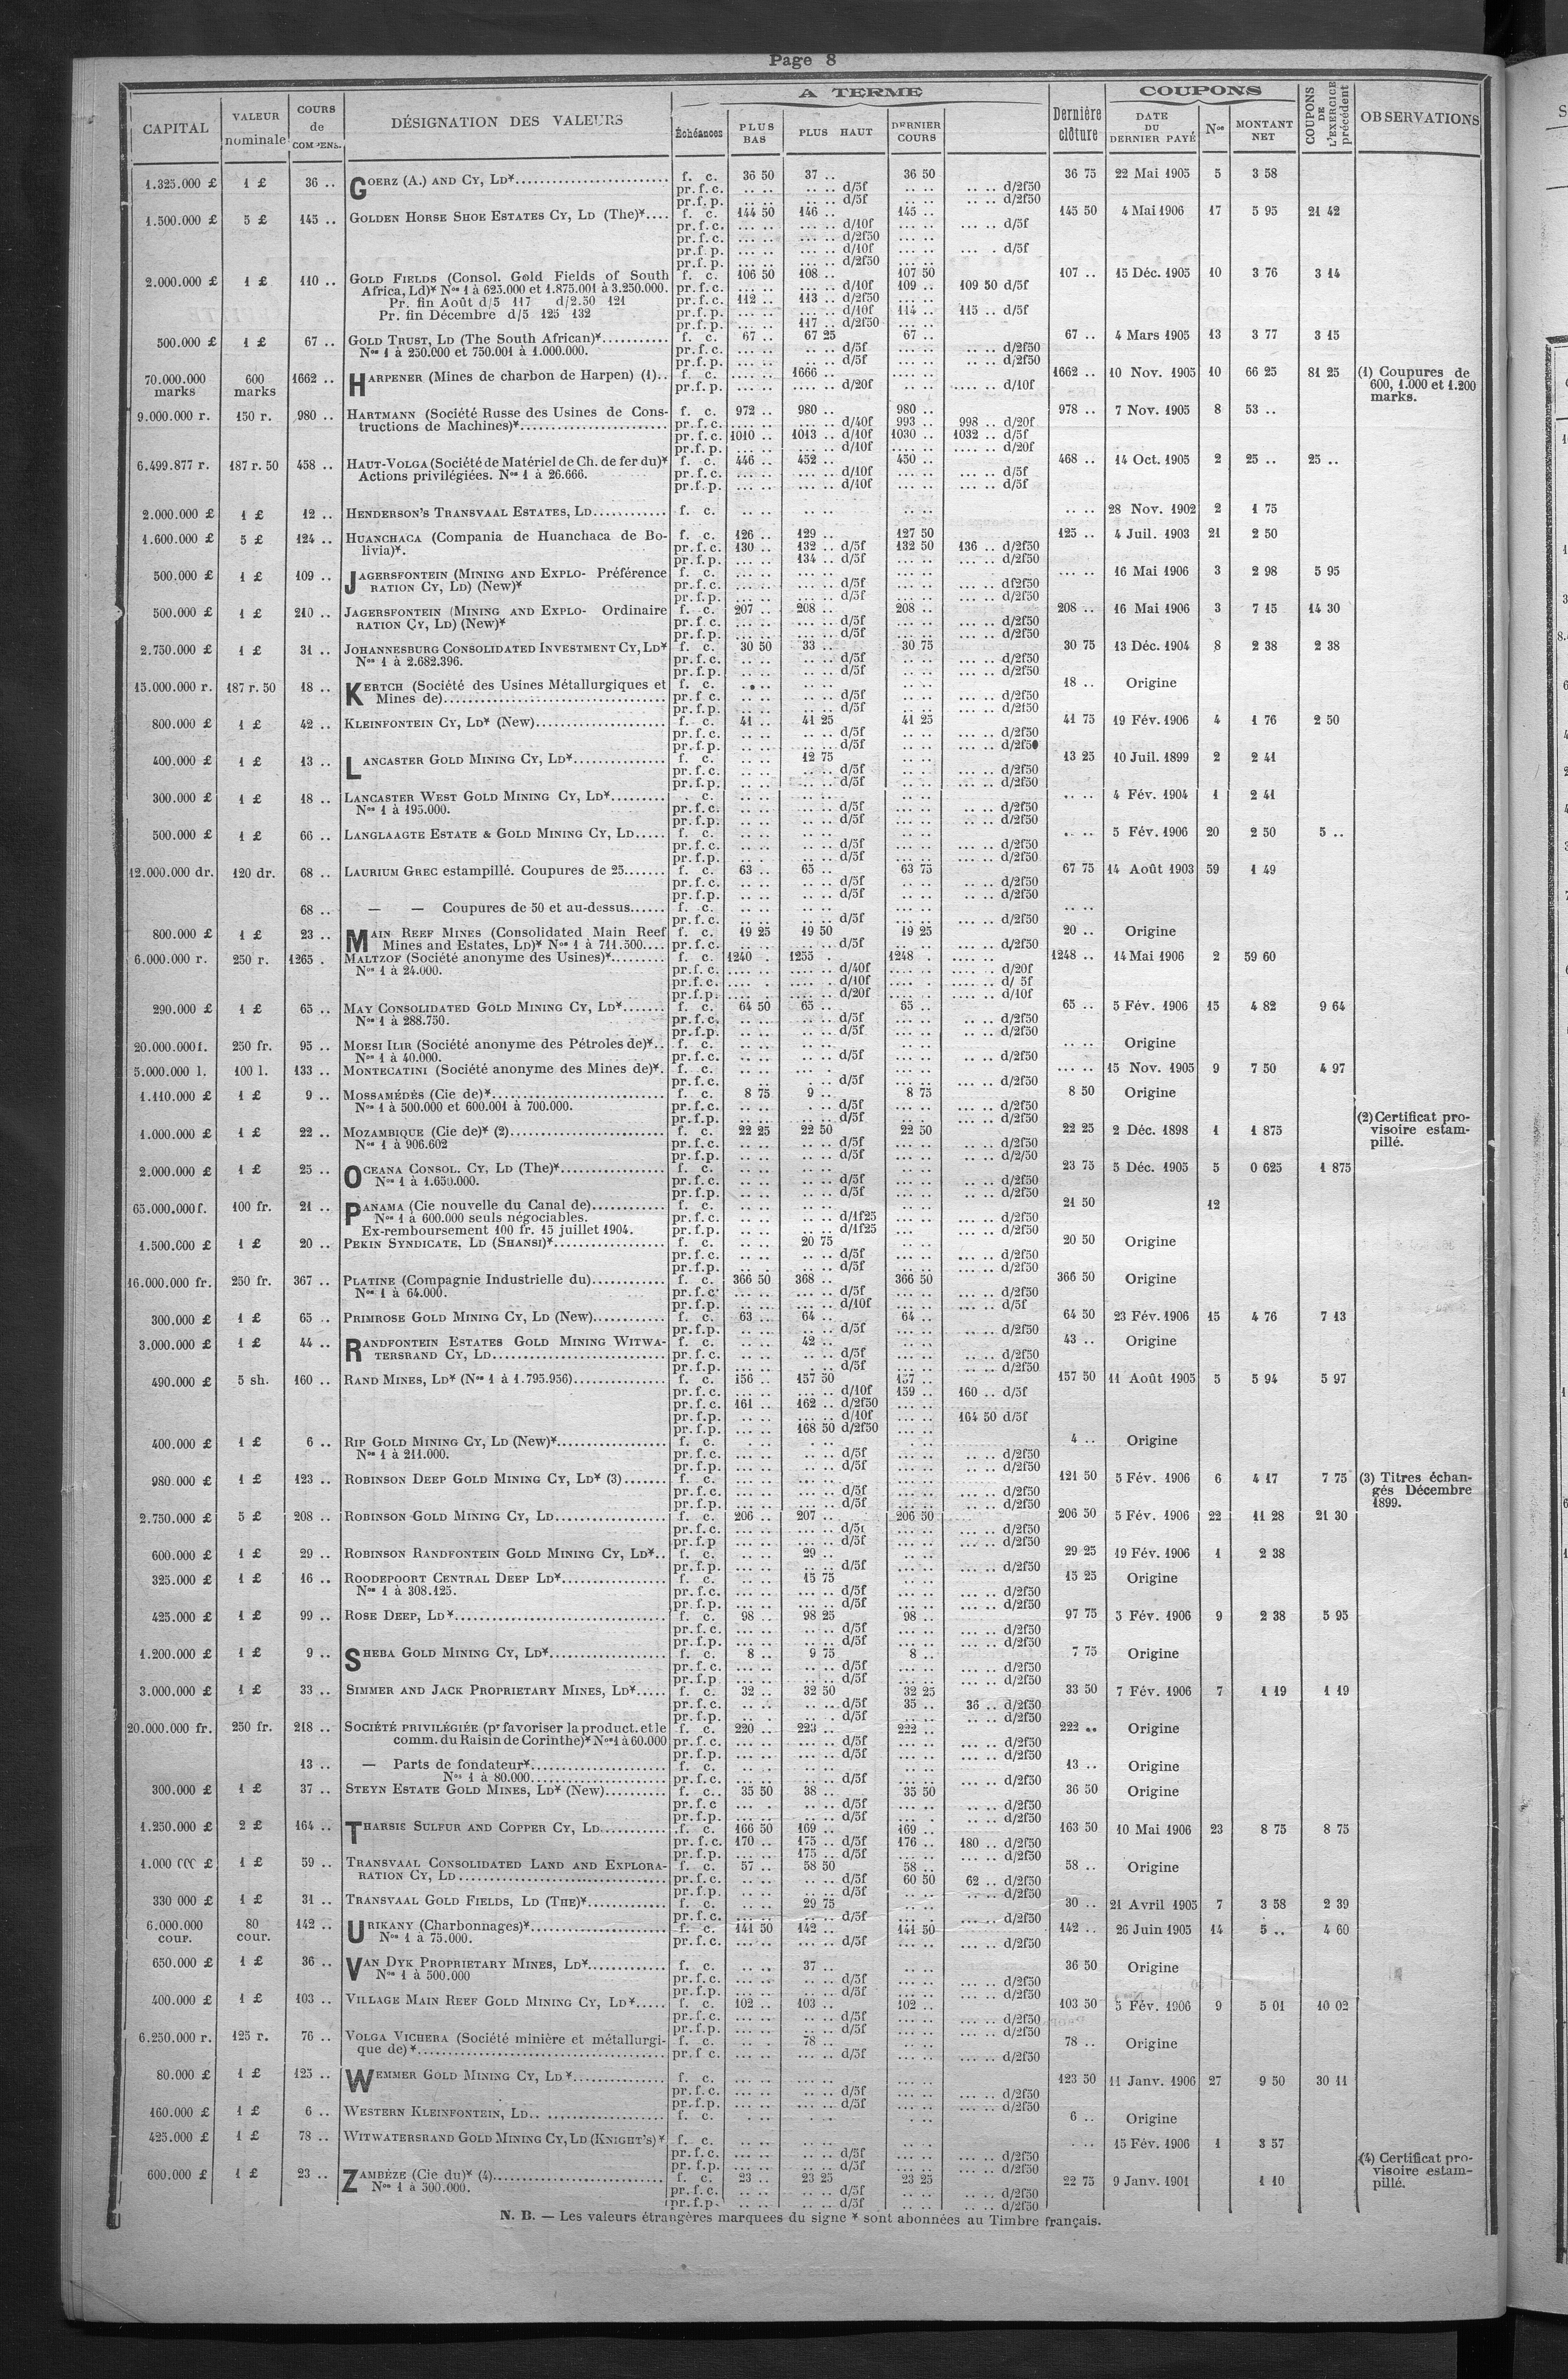 Page 8
CAPITAL VALEUR nominale COURS de COMPENS. DÉSIGNATION DES VALEURS A TERME Échéances PLUS BAS PLUS HAUT DERNIER COURS Dernière clôture COUPONS DATE DU DERNIER PAYÉ Nos MONTANT NET COUPONS DE L'EXERCICE précédent OBSERVATIONS
1.325.000 £ 1 £ 36 .. GOERZ (A.) AND CY, LD*.... f. c. 36 50 37 .. 36 50 36 75 22 Mai 1905 5 3 58
pr. f. c. .. .. .. .. d/5f .. .. .. .. d/2f50
pr. f. p. .. .. .. .. d/5f .. .. .. .. d/2f50
1.500.000 £ 5 £ 145 .. GOLDEN HORSE SHOE ESTATES CY, LD (THE)*.... f. c. 144 50 146 .. 145 .. 145 50 4 Mai 1906 17 5 95 21 42
pr. f. c. ... .. ... .. d/10f ... .. ... .. d/5f
pr. f. c. ... .. ... .. d/2f50 ... ..
pr. f. p. ... .. ... .. d/10f ... .. ... . d/5f
pr. f. p. ... .. ... .. d/2f50 ... ..
2.000.000 £ 1 £ 110 .. GOLD FIELDS (Consol. Gold Fields of South f. c. 106 50 108 .. 107 50 107 .. 15 Déc. 1905 10 3 76 3 14
Africa, Ld)* Nos 1 à 625.000 et 1.875.001 à 3.250.000. pr. f. c. ... .. ... .. d/10f 109 .. 109 50 d/5f
Pr. fin Août d/5 117 d/2.50 121 pr. f. c. 112 .. 113 .. d/2f50 ... ..
Pr. fin Décembre d/5 125 132 pr. f. p. ... .. ... .. d/10f 114 .. 115 .. d/5f
pr. f. p. ... .. 117 .. d/2f50 ... ..
500.000 £ 1 £ 67 .. GOLD TRUST, LD (The South African)*.... f. c. 67 .. 67 25 67 .. 67 .. 4 Mars 1905 13 3 77 3 15
Nos 1 à 250.000 et 750.001 à 1.000.000. pr. f. c. .. .. .. .. d/5f .. .. .. .. d/2f50
pr. f. p. .. .. .. .. d/5f .. .. .. .. d/2f50
70.000.000 marks 600 marks 1662 .. HARPENER (Mines de charbon de Harpen) (1).. f. c. .... .. 1666 .. .... .. 1662 .. 10 Nov. 1905 10 66 25 81 25 (1) Coupures de
pr. f. p. .... .. .... .. d/20f .... .. .... .. d/10f 600, 1.000 et 1.200
marks.
9.000.000 r. 150 r. 980 .. HARTMANN (Société Russe des Usines de Cons- f. c. 972 .. 980 .. 980 .. 978 .. 7 Nov. 1905 8 53 ..
tructions de Machines)*.... pr. f. c. .... .. .... .. d/40f 993 .. 998 .. d/20f
pr. f. c. 1010 .. 1013 .. d/10f 1030 .. 1032 .. d/5f
pr. f. p. .... .. .... .. d/10f .... .. .... .. d/20f
6.499.877 r. 187 r. 50 458 .. HAUT-VOLGA (Société de Matériel de Ch. de fer du)* f. c. 446 .. 452 .. 450 .. 468 .. 14 Oct. 1905 2 25 .. 25 ..
Actions privilégiées. Nos 1 à 26.666. pr. f. c. ... .. ... .. d/10f ... .. ... .. d/5f
pr. f. p. ... .. ... .. d/10f ... .. ... .. d/5f
2.000.000 £ 1 £ 12 .. HENDERSON'S TRANSVAAL ESTATES, LD.... f. c. .. .. .. .. .. .. .. .. 28 Nov. 1902 2 1 75
1.600.000 £ 5 £ 124 .. HUANCHACA (Compania de Huanchaca de Bo- f. c. 126 .. 129 .. 127 50 125 .. 4 Juil. 1903 21 2 50
livia)*. pr. f. c. 130 .. 132 .. d/5f 132 50 136 .. d/2f50
pr. f. p. ... .. 134 .. d/5f ... .. ... .. d/2f50
500.000 £ 1 £ 109 .. JAGERSFONTEIN (MINING AND EXPLO- Préférence f. c. ... .. ... .. ... .. ... .. 16 Mai 1906 3 2 98 5 95
RATION CY, LD) (New)* pr. f. c. ... .. ... .. d/5f ... .. ... .. d/2f50
pr. f. p. ... .. ... .. d/5f ... .. ... .. d/2f50
500.000 £ 1 £ 210 .. JAGERSFONTEIN (MINING AND EXPLO- Ordinaire f. c. 207 .. 208 .. 208 .. 208 .. 16 Mai 1906 3 7 15 14 30
RATION CY, LD) (New)* pr. f. c. ... .. ... .. d/5f ... .. ... .. d/2f50
pr. f. p. ... .. ... .. d/5f ... .. ... .. d/2f50
2.750.000 £ 1 £ 31 .. JOHANNESBURG CONSOLIDATED INVESTMENT CY, LD* f. c. 30 50 33 .. 30 75 30 75 13 Déc. 1904 8 2 38 2 38
Nos 1 à 2.682.396. pr. f. c. .. .. .. .. d/5f .. .. ... .. d/2f50
pr. f. p. .. .. .. .. d/5f .. .. ... .. d/2f50
15.000.000 r. 187 r. 50 18 .. KERTCH (Société des Usines Métallurgiques et f. c. .. .. .. .. .. .. 18 .. Origine
Mines de).... pr. f. c. .. .. .. .. d/5f .. .. ... .. d/2f50
pr. f. p. .. .. .. .. d/5f .. .. ... .. d/2f50
800.000 £ 1 £ 42 .. KLEINFONTEIN CY, LD* (New).... f. c. 41 .. 41 25 41 25 41 75 19 Fév. 1906 4 1 76 2 50
pr. f. c. .. .. .. .. d/5f .. .. ... .. d/2f50
pr. f. p. .. .. .. .. d/5f .. .. ... .. d/2f50
400.000 £ 1 £ 13 .. LANCASTER GOLD MINING CY, LD*.... f. c. .. .. 12 75 .. .. 13 25 10 Juil. 1899 2 2 41
pr. f. c. .. .. .. .. d/5f .. .. ... .. d/2f50
pr. f. p. .. .. .. .. d/5f .. .. ... .. d/2f50
300.000 £ 1 £ 18 .. LANCASTER WEST GOLD MINING CY, LD*.... c. .. .. .. .. .. .. .. .. 4 Fév. 1904 1 2 41
Nos 1 à 195.000. pr. f. c. .. .. .. .. d/5f ... .. .. .. d/2f50
pr. f. p. .. .. .. .. d/5f ... .. .. .. d/2f50
500.000 £ 1 £ 66 .. LANGLAAGTE ESTATE & GOLD MINING CY, LD..... f. c. .. .. .. .. .. .. .. .. 5 Fév. 1906 20 2 50 5 ..
pr. f. c. .. .. .. .. d/5f ... .. ... .. d/2f50
pr. f. p. .. . .. .. d/5f ... .. ... .. d/2f50
12.000.000 dr. 120 dr. 68 .. LAURIUM GREC estampillé. Coupures de 25....... f. c. 63 .. 65 .. 63 75 67 75 14 Août 1903 59 1 49
pr. f. c. .. .. .. .. d/5f .. .. .. .. d/2f50
pr. f. p. .. .. .. .. d/5f .. .. .. .. d/2f50
68 .. — — Coupures de 50 et au-dessus...... f. c. .. .. .. .. .. .. .. ..
pr. f. c. .. .. .. .. d/5f .. .. ... .. d/2f50
800.000 £ 1 £ 23 .. MAIN REEF MINES (Consolidated Main Reef f. c. 19 25 19 50 19 25 20 .. Origine
Mines and Estates, LD)* Nos 1 à 711.500.... pr. f. c. .. .. .. .. d/5f .. .. .. .. d/2f50
6.000.000 r. 250 r. 1265 . MALTZOF (Société anonyme des Usines)*......... f. c. 1240 . 1255 . 1248 . .... .. 1248 .. 14 Mai 1906 2 59 60
Nos 1 à 24.000. pr. f. c. .... .. .... .. d/40f .... .. .... .. d/20f
pr. f. c. .... . .... .. d/10f .... .. .... .. d/ 5f
pr. f. p. .... .. .... .. d/20f .... .. .... .. d/10f
290.000 £ 1 £ 65 .. MAY CONSOLIDATED GOLD MINING CY, LD*....... f. c. 64 50 65 .. 65 .. 65 .. 5 Fév. 1906 15 4 82 9 64
Nos 1 à 288.750. pr. f. c. .. .. .. .. d/5f .. .. .. .. d/2f50
pr. f. p. .. .. .. .. d/5f .. .. .. .. d/2f50
20.000.000 f. 250 fr. 95 .. MOESI ILIR (Société anonyme des Pétroles de)*.. f. c. .. .. .. .. .. .. .. .. Origine
Nos 1 à 40.000. pr. f. c. .. .. .. .. d/5f ... .. ... .. d/2f50
5.000.000 l. 100 l. 133 .. MONTECATINI (Société anonyme des Mines de)*. f. c. ... .. ... . ... .. ... .. 15 Nov. 1905 9 7 50 4 97
pr. f. c. .. .. . .. d/5f ... .. ... .. d/2f50
1.110.000 £ 1 £ 9 .. MOSSAMÉDÈS (Cie de)*.... f. c. 8 75 9 .. 8 75 8 50 Origine
Nos 1 à 500.000 et 600.001 à 700.000. pr. f. c. .. .. . .. d/5f .. .. ... .. d/2f50
pr. f. p. .. .. .. .. d/5f .. .. ... .. d/2f50 (2) Certificat pro-
1.000.000 £ 1 £ 22 .. MOZAMBIQUE (Cie de)* (2).... f. c. 22 25 22 50 22 50 22 25 2 Déc. 1898 1 1 875 visoire estam-
Nos 1 à 906.602 pr. f. c. .. .. .. .. d/5f .. .. .. .. d/2f50 pillé.
pr. f. p. .. .. .. .. d/5f .. .. .. .. d/2/50
2.000.000 £ 1 £ 25 .. OCEANA CONSOL. CY, LD (The)*.... f. c. .. .. .. .. .. .. 23 75 5 Déc. 1905 5 0 625 1 875
Nos 1 à 1.650.000. pr. f. c. .. .. .. .. d/5f .. .. ... .. d/2f50
pr. f. p. .. .. .. .. d/5f .. .. ... .. d/2f50
65.000.000 f. 100 fr. 21 .. PANAMA (Cie nouvelle du Canal de).... f. c. .. .. .. .. .. .. 21 50 12
Nos 1 à 600.000 seuls négociables. pr. f. c. .. .. .. .. d/1f25 ... .. .. d/2f50
Ex-remboursement 100 fr. 15 juillet 1904. pr. f. p. .. .. .. .. d/1f25 ... .. .. d/2f50
1.500.000 £ 1 £ 20 .. PEKIN SYNDICATE, LD (SHANSI)*.... f. c. .. .. 20 75 .. .. 20 50 Origine
pr. f. c. .. .. .. .. d/5f .. .. ... .. d/2f50
pr. f. p. .. .. .. .. d/5f .. .. ... .. d/2f50
16.000.000 fr. 250 fr. 367 .. PLATINE (Compagnie Industrielle du).... f. c. 366 50 368 .. 366 50 366 50 Origine
Nos 1 à 64.000. pr. f. c. ... .. ... .. d/5f ... .. ... .. d/2f50
pr. f. p. ... .. ... .. d/10f ... .. ... .. d/5f
300.000 £ 1 £ 65 .. PRIMROSE GOLD MINING CY, LD (New).... f. c. 63 .. 64 .. 64 .. 64 50 23 Fév. 1906 15 4 76 7 13
pr. f. p. .. .. .. .. d/5f .. .. .. .. d/2f50
3.000.000 £ 1 £ 44 .. RANDFONTEIN ESTATES GOLD MINING WITWA- f. c. .. .. 42 .. .. .. 43 .. Origine
TERSRAND CY, LD.... pr. f. c. .. .. .. .. d/5f ... .. .. .. d/2f50
pr. f. p. ... .. .. . d/5f ... .. .. .. d/2f50
490.000 £ 5 sh. 160 .. RAND MINES, LD* (Nos 1 à 1.795.956).... f. c. 156 .. 157 50 157 .. 157 50 11 Août 1905 5 5 94 5 97
pr. f. c. ... .. ... .. d/10f 159 .. 160 .. d/5f
pr. f. c. 161 .. 162 .. d/2f50 ... ..
pr. f. p. .. .. ... .. d/10f ... .. 164 50 d/5f
pr. f. p. ... .. 168 50 d/2f50 ... ..
400.000 £ 1 £ 6 .. RIP GOLD MINING CY, LD (New)*.... f. c. . .. . .. . .. 4 .. Origine
Nos 1 à 211.000. pr. f. c. ... .. .. .. d/5f ... .. .. .. d/2f50
pr. f. p. ... .. .. .. d/5f ... .. .. .. d/2f50
980.000 £ 1 £ 123 .. ROBINSON DEEP GOLD MINING CY, LD* (3)....... f. c. ... .. ... .. ... .. 121 50 5 Fév. 1906 6 4 17 7 75 (3) Titres échan-
pr. f. c. ... .. ... .. d/5f ... .. ... .. d/2f50 gés Décembre
pr. f. p. ... .. ... .. d/5f ... .. ... .. d/2f50 1899.
2.750.000 £ 5 £ 208 .. ROBINSON GOLD MINING CY, LD.... f. c. 206 .. 207 .. 206 50 206 50 5 Fév. 1906 22 11 28 21 30
pr. f. c. ... .. ... .. d/5f ... .. ... .. d/2f50
pr. f. p ... .. ... .. d/5f ... .. ... .. d/2f50
600.000 £ 1 £ 29 .. ROBINSON RANDFONTEIN GOLD MINING CY, LD*.. f. c. .. .. 29 .. .. .. 29 25 19 Fév. 1906 1 2 38
pr. f. p. ... .. .. .. d/5f ... .. ... .. d/2f50
325.000 £ 1 £ 16 .. ROODEPOORT CENTRAL DEEP LD*.... f. c. .. .. 15 75 .. .. 15 25 Origine
Nos 1 à 308.125. pr. f. c. ... .. .. .. d/5f ... .. ... .. d/2f50
pr. f. p. ... .. .. .. d/5f ... .. ... .. d/2f50
425.000 £ 1 £ 99 .. ROSE DEEP, LD*.... f. c. 98 .. 98 25 98 .. 97 75 5 Fév. 1906 9 2 38 5 95
pr. f. c. ... .. .. .. d/5f ... .. ... .. d/2f50
pr. f. p. ... .. .. .. d/5f ... .. ... .. d/2f50
1.200.000 £ 1 £ 9 .. SHEBA GOLD MINING CY, LD*.... f. c. 8 .. 9 75 8 .. 7 75 Origine
pr. f. c. ... .. .. .. d/5f ... .. ... .. d/2f50
pr. f. p. ... .. .. .. d/5f ... .. ... .. d/2f50
3.000.000 £ 1 £ 33 .. SIMMER AND JACK PROPRIETARY MINES, LD*..... f. c. 32 .. 32 50 32 25 33 50 7 Fév. 1906 7 1 19 1 19
pr. f. c. .. .. .. .. d/5f 35 .. 36 .. d/2f50
pr. f. p. .. .. .. . d/5f ... .. .. .. d/2f50
20.000.000 fr. 250 fr. 218 .. SOCIÉTÉ PRIVILÉGIÉE (pr favoriser la product. et le f. c. 220 .. 223 .. 222 .. 222 .. Origine
comm. du Raisin de Corinthe)* Nos 1 à 60.000 pr. f. c. ... .. ... .. d/5f ... .. ... .. d/2f50
pr. f. p. ... .. ... .. d/5f ... .. ... .. d/2f50
13 .. — Parts de fondateur*.... f. c. .. .. .. .. .. .. 13 .. Origine
Nos 1 à 80.000.... pr. f. c. ... .. .. .. d/5f ... .. ... .. d/2f50
300.000 £ 1 £ 37 .. STEYN ESTATE GOLD MINES, LD* (New).......... f. c. 35 50 38 .. 35 50 36 50 Origine
pr. f. c ... . .. .. d/5f ... .. ... .. d/2f50
pr. f. p. ... .. .. .. d/5f ... . ... .. d/2f50
1.250.000 £ 2 £ 164 .. THARSIS SULFUR AND COPPER CY, LD.......... f. c. 166 50 169 .. 169 .. 163 50 10 Mai 1906 23 8 75 8 75
pr. f. c. 170 .. 175 .. d/5f 176 .. 180 .. d/2f50
pr. f. p. ... .. 175 .. d/5f ... .. ... .. d/2f50
1.000 000 £ 1 £ 59 .. TRANSVAAL CONSOLIDATED LAND AND EXPLORA- f. c. 57 .. 58 50 58 .. 58 .. Origine
RATION CY, LD.... pr. f. c. ... .. .. .. d/5f 60 50 62 .. d/2f50
pr. f. p. ... .. .. .. d/5f ... .. ... .. d/2f50
330 000 £ 1 £ 31 .. TRANSVAAL GOLD FIELDS, LD (THE)*.... f. c. .. .. 29 75 .. .. 30 .. 21 Avril 1905 7 3 58 2 39
pr. f. c. ... .. .. .. d/5f ... .. ... .. d/2f50
6.000.000 cour. 80 cour. 142 .. URIKANY (Charbonnages)*.... f. c. 141 50 142 .. 141 50 142 .. 26 Juin 1905 14 5 .. 4 60
Nos 1 à 75.000. pr. f. c. ... .. ... .. d/5f ... .. ... .. d/2f50
650.000 £ 1 £ 36 .. VAN DYK PROPRIETARY MINES, LD*.... f. c. .. .. 37 .. .. .. 36 50 Origine
Nos 1 à 500.000 pr. f. c. ... .. ... .. d/5f ... .. ... .. d/2f50
pr. f. p. ... .. ... .. d/5f ... .. ... .. d/2f50
400.000 £ 1 £ 103 .. VILLAGE MAIN REEF GOLD MINING CY, LD*..... f. c. 102 .. 103 .. 102 .. 103 50 5 Fév. 1906 9 5 01 10 02
pr. f. c. ... .. ... .. d/5f ... .. ... .. d/2f50
pr. f. p. ... .. ... .. d/5f ... .. ... .. d/2f50
6.250.000 r. 125 r. 76 .. VOLGA VICHERA (Société minière et métallurgi- f. c. .. . 78 .. .. .. 78 .. Origine
que de)*.... pr. f. c. ... .. ... .. d/5f ... .. ... .. d/2f50
80.000 £ 1 £ 125 .. WEMMER GOLD MINING CY, LD*.... f. c. ... .. ... .. ... .. 123 50 11 Janv. 1906 27 9 50 30 11
pr. f. c. ... .. ... .. d/5f ... .. ... .. d/2f50
pr. f. p. ... .. ... .. d/5f ... .. ... .. d/2f50
160.000 £ 1 £ 6 .. WESTERN KLEINFONTEIN, LD.... f. c. . .. . .. . .. 6 .. Origine
425.000 £ 1 £ 78 .. WITWATERSRAND GOLD MINING CY, LD (KNIGHT'S)* f. c. .. .. .. .. .. .. . .. 15 Fév. 1906 1 3 57
pr. f. c. ... .. .. .. d/5f ... .. ... .. d/2f50 (4) Certificat pro-
pr. f. p. ... .. .. .. d/5f ... .. ... .. d/2f50 visoire estam-
600.000 £ 1 £ 23 .. ZAMBÈZE (Cie du)* (4).... f. c. 23 .. 23 25 23 25 22 75 9 Janv. 1901 1 10 pillé.
Nos 1 à 500.000. pr. f. c. .. .. .. .. d/5f .. .. .. .. d/2f50
pr. f. p. .. .. .. .. d/5f .. .. .. .. d/2f50
N. B. — Les valeurs étrangères marquees du signe * sont abonnées au Timbre français.